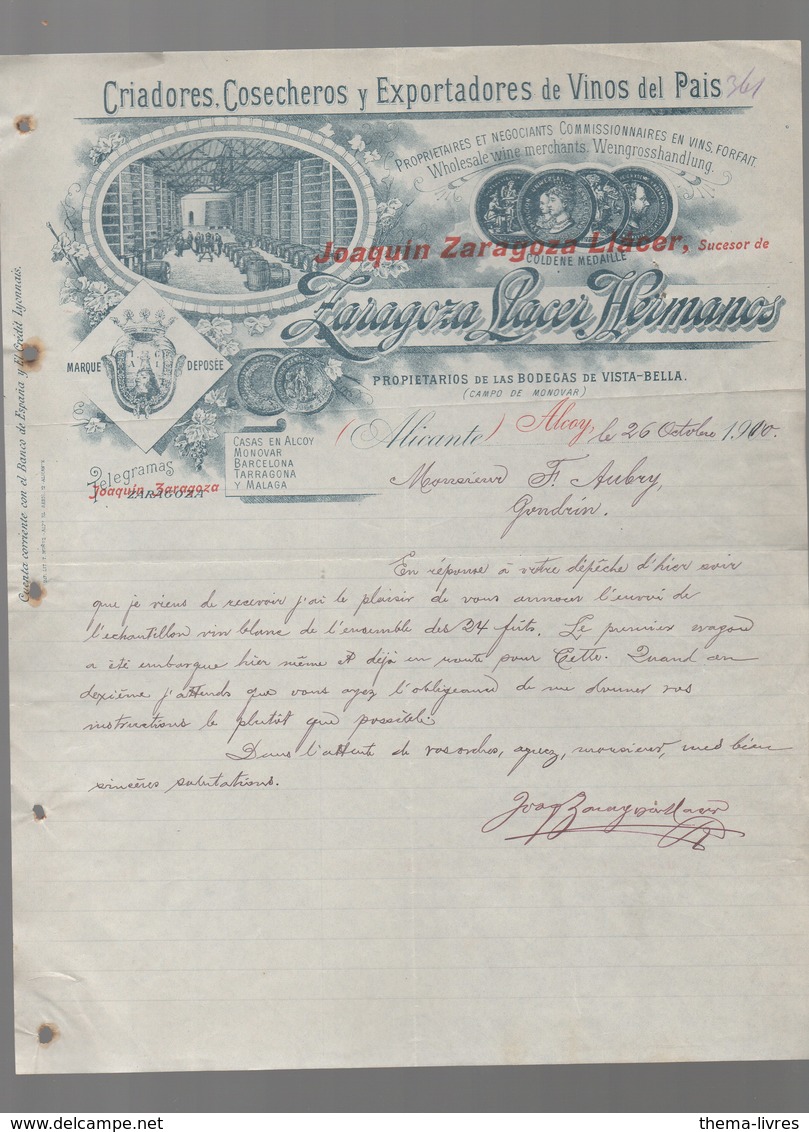 Criadores, Cosecheros y Exportadores de Vinos del Pais
361
PROPRIETAIRES ET NEGOCIANTS COMMISSIONNAIRES EN VINS, FORFAIT.
Wholesale wine merchants. Weingrosshandlung.
Joaquin Zaragoza Llácer, Sucesor de
GOLDENE MEDAILLE
Zaragoza Llacer Hermanos
MARQUE DEPOSÉE
PROPIETARIOS DE LAS BODEGAS DE VISTA-BELLA.
(CAMPO DE MONOVAR)
(Alicante) Alcoy, le 26 Octobre 1910.
CASAS EN ALCOY
MONOVAR
BARCELONA
TARRAGONA
Y MALAGA
Telegramas
Joaquin Zaragoza
ZARAGOZA
Cuenta corriente con el Banco de España y El Crédit Lyonnais.
Monsieur F. Aubry,
Gondrin.
En réponse à votre dépêche d'hier soir
que je viens de recevoir j'ai le plaisir de vous annocer l'envoi de
l'echantillon vin blanc de l'ensemble des 24 fûts. Le premier wagon
a été embarque hier même et déjà en route pour Cette. Quand au
dexième j'attends que vous ayez l'obligeance de me donner vos
instructions le plutôt que possible.
Dans l'attente de vos ordres, agreez, monsieur, mes bien
sincères salutations.
Joaq Zaragoza Llacer
delcampe.net
thema-livres